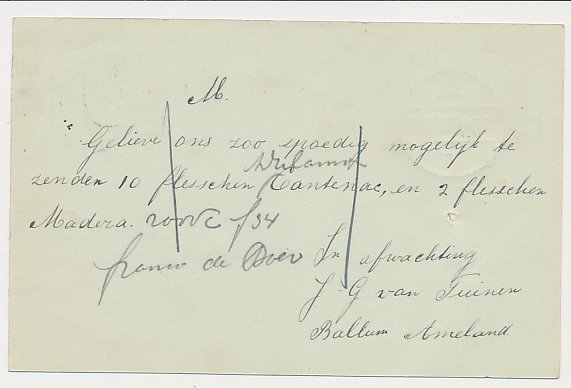 M.
Gelieve ons zoo spoedig mogelijk te
zenden 10 flesschen Cantenac, en 2 flesschen
Madera. f34
franco de
In afwachting
J. G van Tuinen
Ballum Ameland